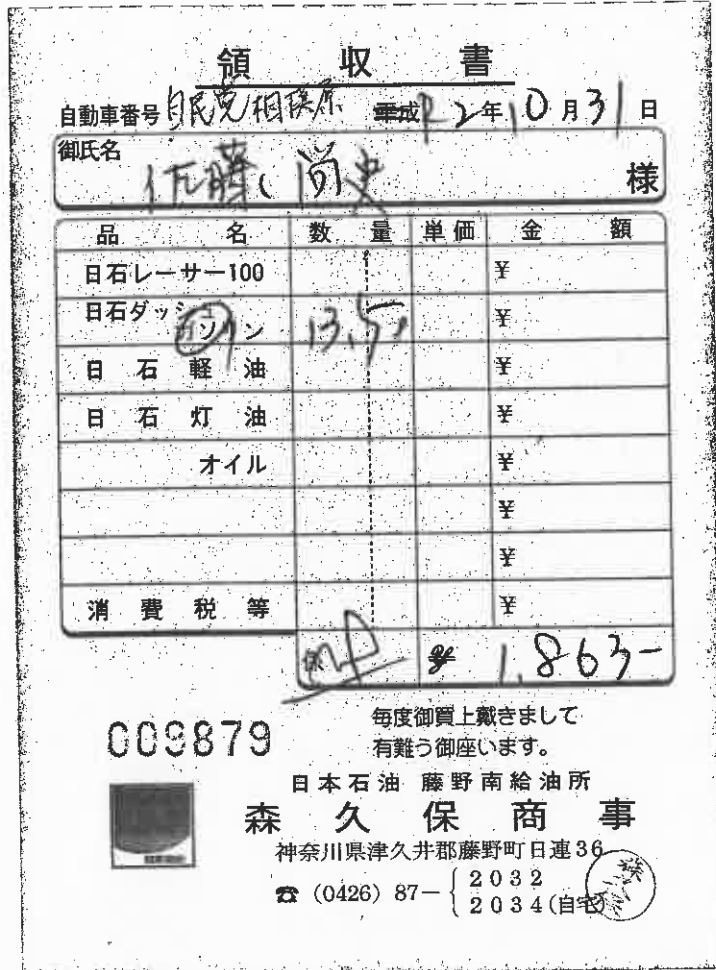 領収書
自動車番号 自民党相模原 平成R2年10月31日
御氏名
佐藤 尚史 様
品名 数量 単価 金額
日石レーサー100 ¥
日石ダッシュ ¥
ガソリン 13,5
日石軽油 ¥
日石灯油 ¥
オイル ¥
¥
¥
消費税等 ¥
¥ 1,863-
毎度御買上戴きまして
009879
有難う御座います。
日本石油 藤野南給油所
森久保商事
神奈川県津久井郡藤野町日連36
☎ (0426) 87-
2032
2034(自宅)
森久保